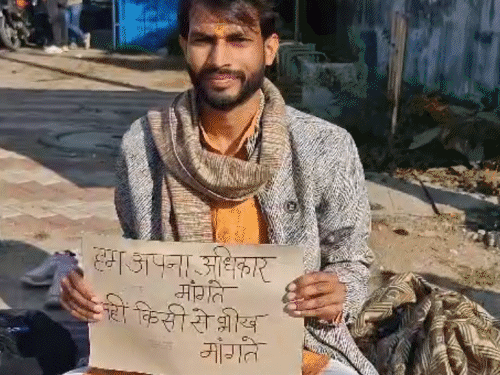 हम अपना अधिकार
मांगते
नहीं किसी से भीख
मांगते